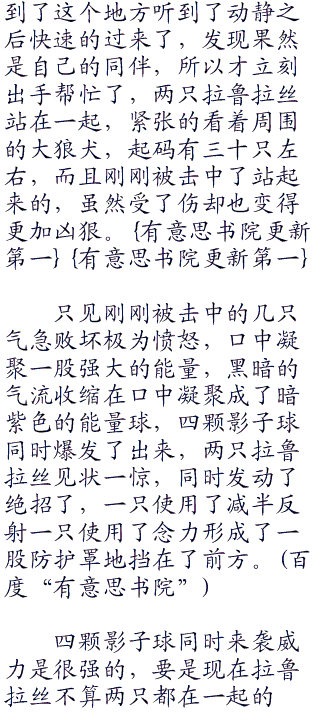 到了这个地方听到了动静之
后快速的过来了，发现果然
是自己的同伴，所以才立刻
出手帮忙了，两只拉鲁拉丝
站在一起，紧张的看着周围
的大狼犬，起码有三十只左
右，而且刚刚被击中了站起
来的，虽然受了伤却也变得
更加凶狠。{有意思书院更新
第一}{有意思书院更新第一}
只见刚刚被击中的几只
气急败坏极为愤怒，口中凝
聚一股强大的能量，黑暗的
气流收缩在口中凝聚成了暗
紫色的能量球，四颗影子球
同时爆发了出来，两只拉鲁
拉丝见状一惊，同时发动了
绝招了，一只使用了减半反
射一只使用了念力形成了一
股防护罩地挡在了前方。(百
度“有意思书院”)
四颗影子球同时来袭威
力是很强的，要是现在拉鲁
拉丝不算两只都在一起的